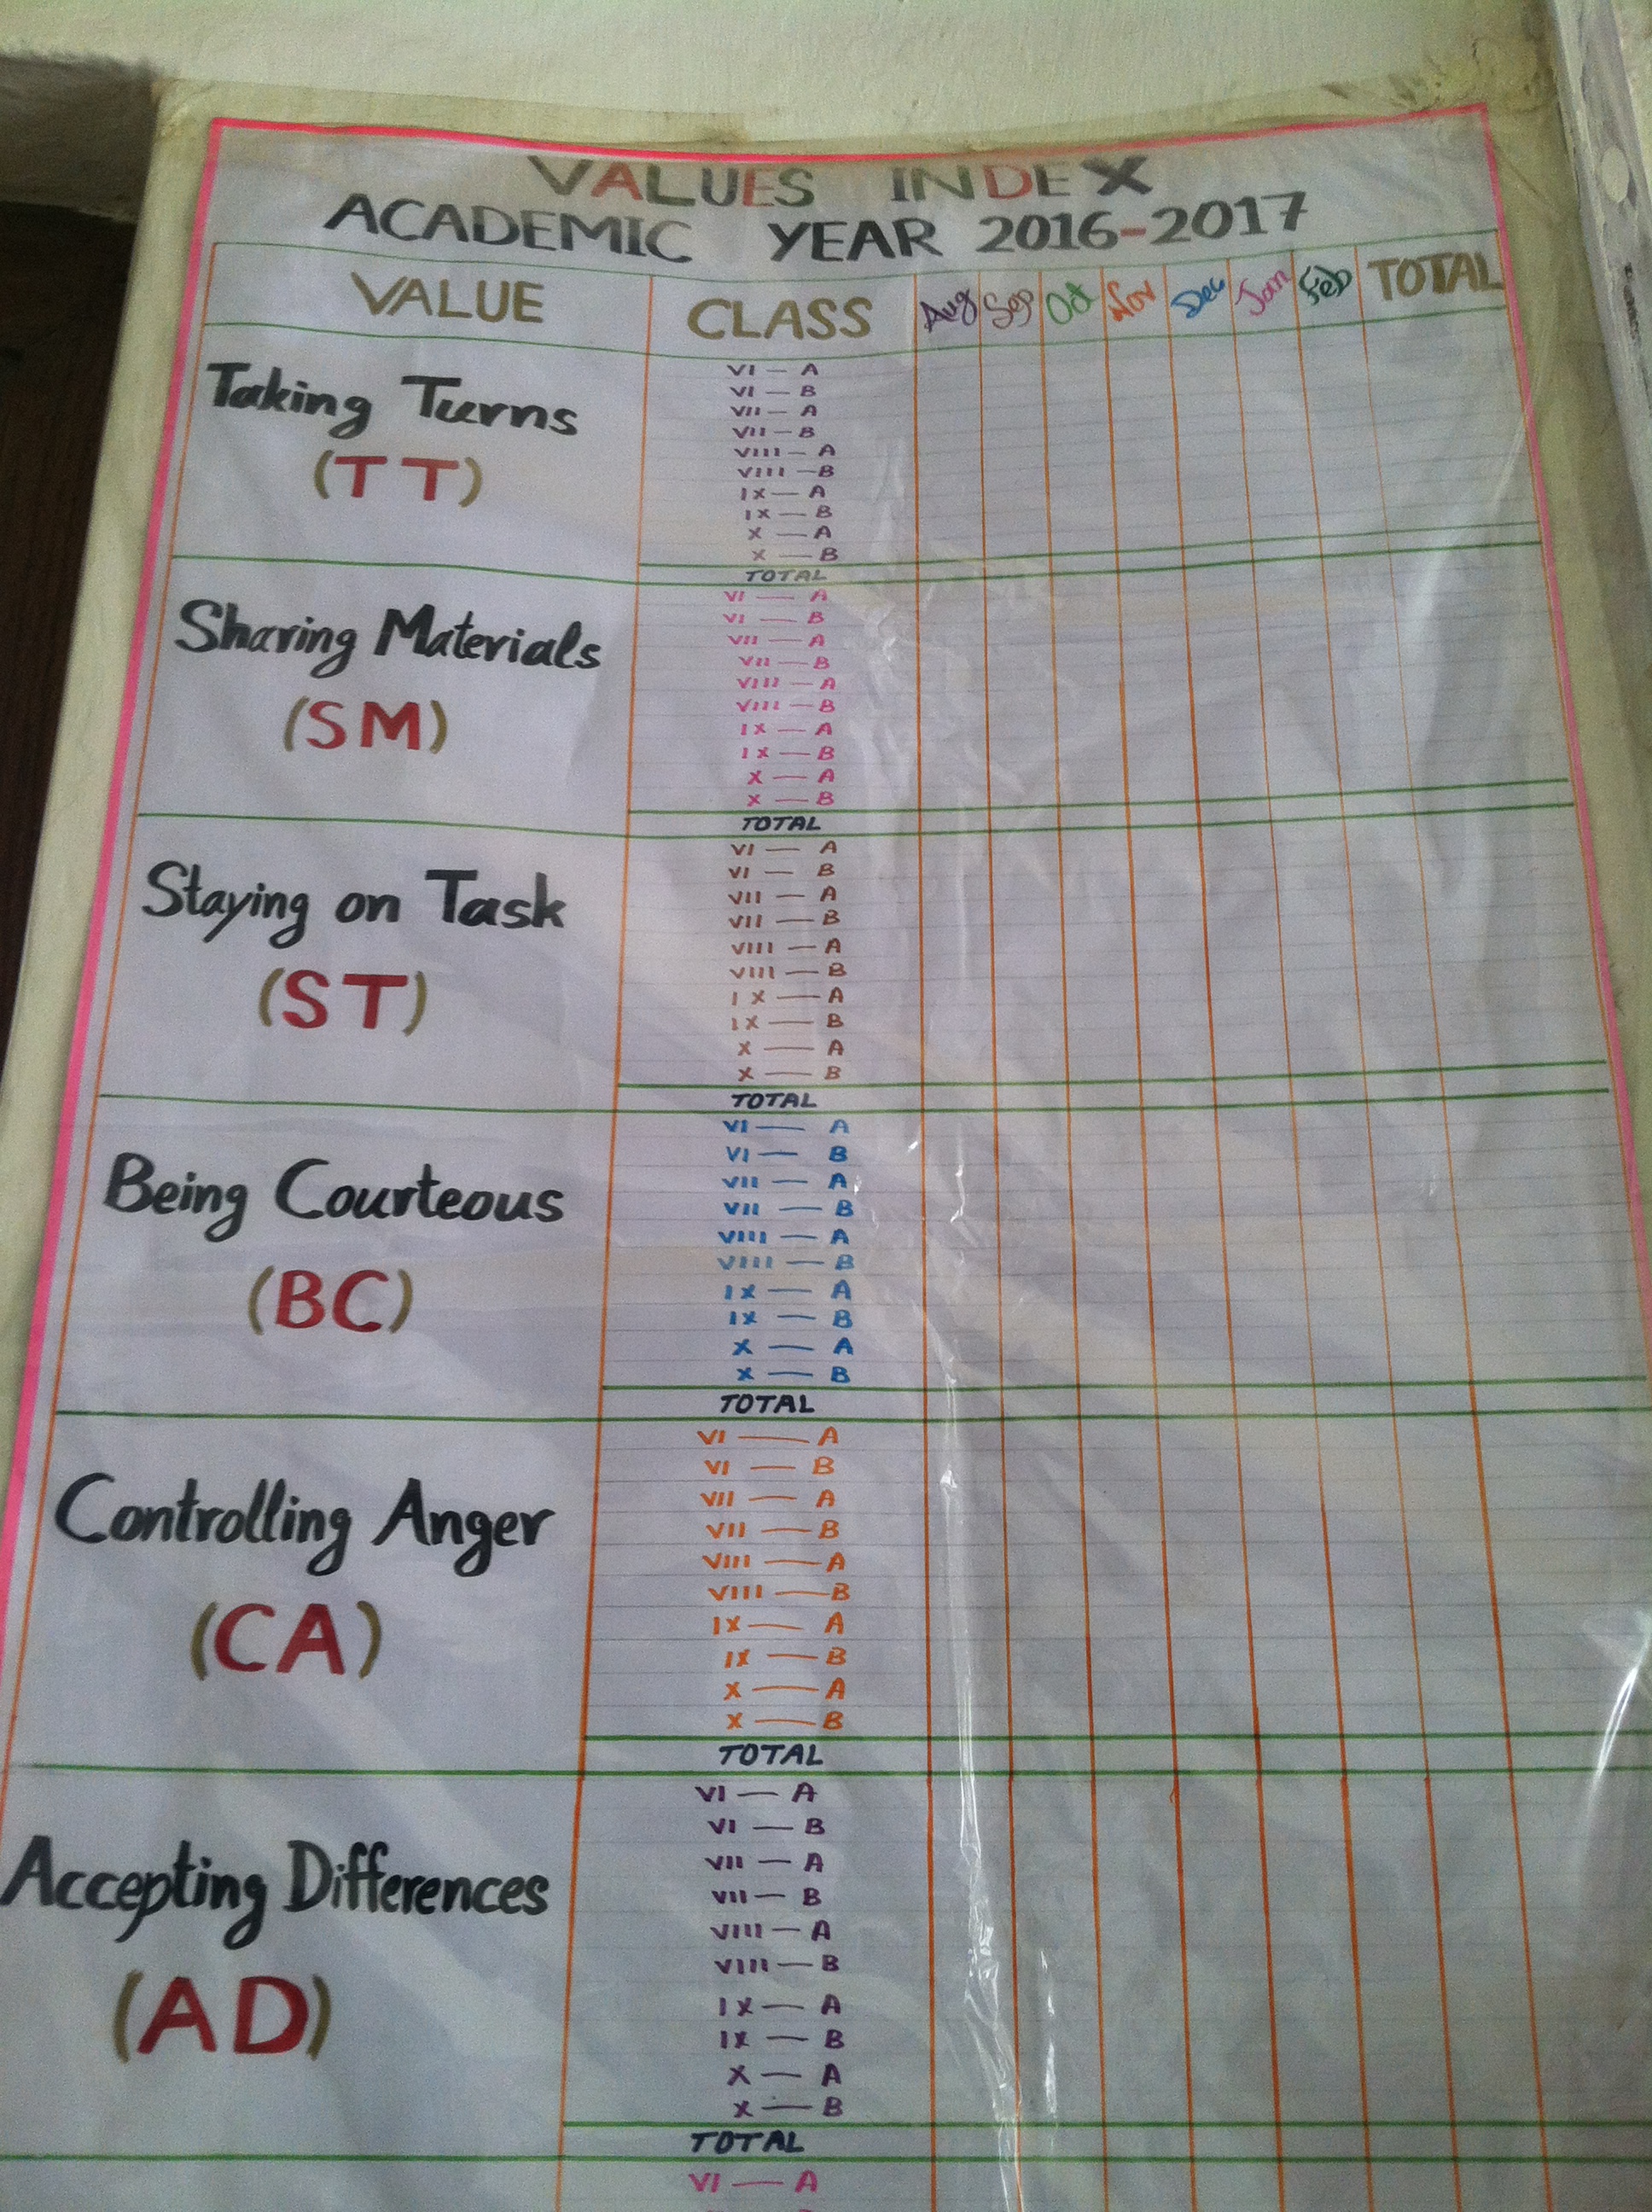 VALUES INDEX
ACADEMIC YEAR 2016-2017
VALUE CLASS Aug Sep Oct Nov Dec Jan Feb TOTAL
Taking Turns
(TT)
VI — A
VI — B
VII — A
VII — B
VIII — A
VIII — B
IX — A
IX — B
X — A
X — B
TOTAL
Sharing Materials
(SM)
VI — A
VI — B
VII — A
VII — B
VIII — A
VIII — B
IX — A
IX — B
X — A
X — B
TOTAL
Staying on Task
(ST)
VI — A
VI — B
VII — A
VII — B
VIII — A
VIII — B
IX — A
IX — B
X — A
X — B
TOTAL
Being Courteous
(BC)
VI — A
VI — B
VII — A
VII — B
VIII — A
VIII — B
IX — A
IX — B
X — A
X — B
TOTAL
Controlling Anger
(CA)
VI — A
VI — B
VII — A
VII — B
VIII — A
VIII — B
IX — A
IX — B
X — A
X — B
TOTAL
Accepting Differences
(AD)
VI — A
VI — B
VII — A
VII — B
VIII — A
VIII — B
IX — A
IX — B
X — A
X — B
TOTAL
VI — A